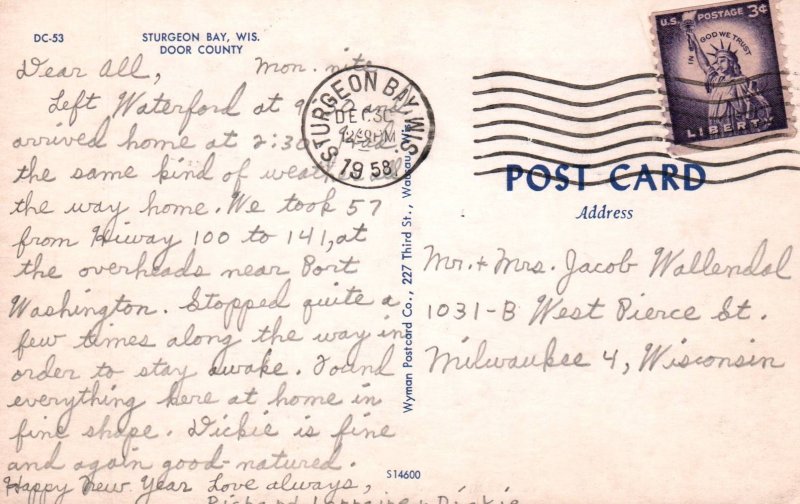 DC-53
STURGEON BAY, WIS.
DOOR COUNTY
Dear All, Mon. nite
Left Waterford at 9 and
arrived home at 2:30. Had
the same kind of weather all
the way home. We took 57
from Hiway 100 to 141, at
the overheads near Port
Washington. Stopped quite a
few times along the way in
order to stay awake. Found
everything here at home in
fine shape. Dickie is fine
and again good-natured.
Happy New Year Love always,
Richard Lorraine + Dickie
S14600
Wyman Postcard Co., 227 Third St., Wausau, Wis.
STURGEON BAY, WIS.
DEC 30
1958
U.S. POSTAGE 3¢
IN GOD WE TRUST
LIBERTY
POST CARD
Address
Mr. + Mrs. Jacob Wallendal
1031-B West Pierce St.
Milwaukee 4, Wisconsin